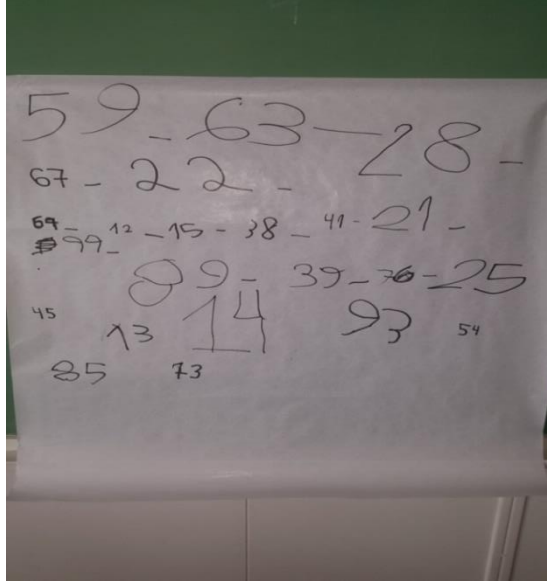 59 - 63 - 28 -
67 - 22 -
64 - 12 - 15 - 38 - 41 - 21 -
99 -
89 - 39 - 76 - 25
45 13 14 93 54
85 73